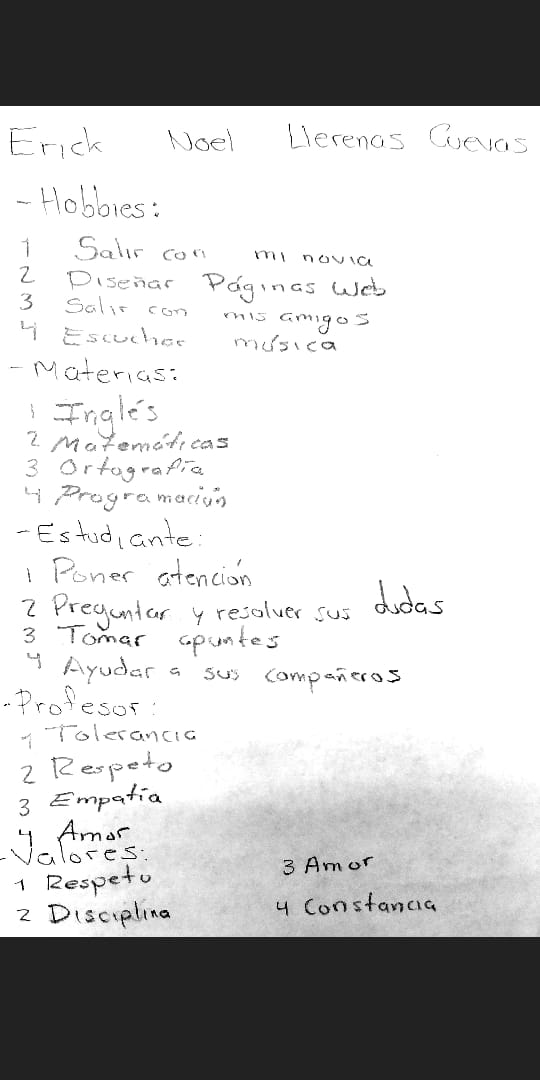 Erick Noel Llerenas Cuevas
- Hobbies:
1 Salir con mi novia
2 Diseñar Páginas Web
3 Salir con mis amigos
4 Escuchar música
- Materias:
1 Inglés
2 Matemáticas
3 Ortografía
4 Programación
- Estudiante:
1 Poner atención
2 Preguntar y resolver sus dudas
3 Tomar apuntes
4 Ayudar a sus compañeros
- Profesor:
1 Tolerancia
2 Respeto
3 Empatía
4 Amor
- Valores:
1 Respeto
2 Disciplina
3 Amor
4 Constancia